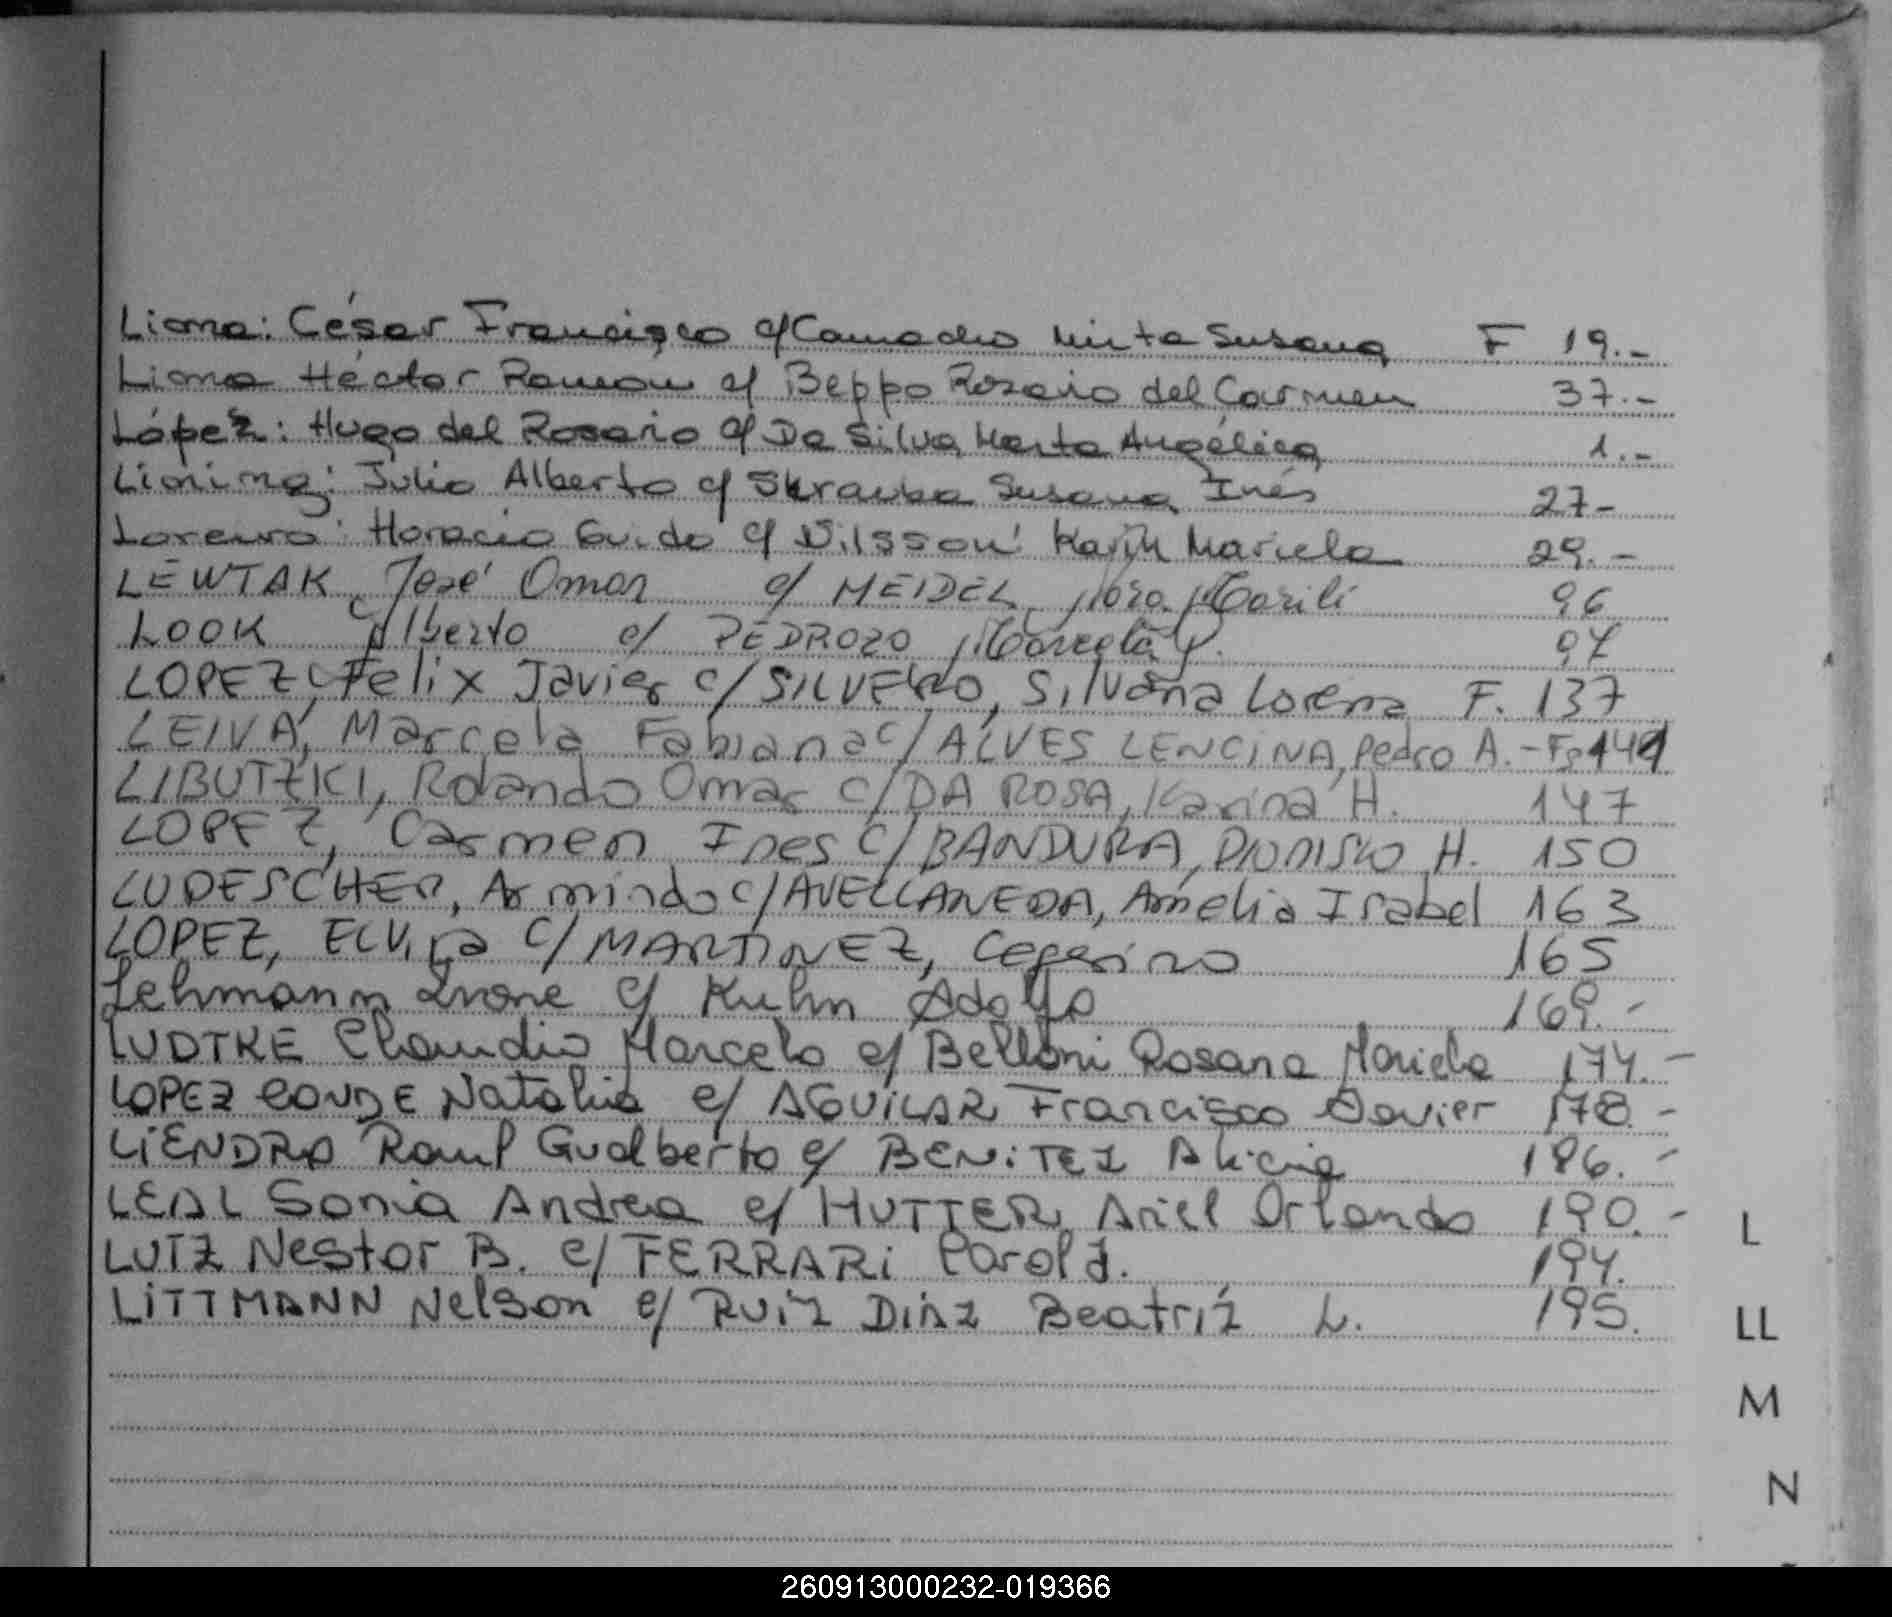 Lioma: César Francisco c/ Camacho Mirta Susana F 19.-
Lioma Héctor Ramon c/ Beppo Rosario del Carmen 37.-
López: Hugo del Rosario c/ Da Silva Marta Angélica 1.-
Lioning: Julio Alberto c/ Skrauba Susana Inés 27-
Loreiro: Horacio Guido c/ Nilsson Karin Mariela 29.-
LEWTAK, José Omar c/ MEIDEL, Nora Marili 96
LOOK Alberto c/ PEDROZO Marcela 97
LOPEZ, Felix Javier c/ SILVERO, Silvana Lorena F. 137
LEIVA, Marcela Fabiana c/ ALVES LENCINA, Pedro A. - Fo 141
LIBUTZKI, Rolando Omar c/ DA ROSA, Karina H. 147
LOPEZ, Carmen Ines c/ BANDURA, DIONISIO H. 150
LUDESCHER, Armindo c/ AVELLANEDA, Amelia Isabel 163
LOPEZ, ELVira c/ MARTINEZ, Ceferino 165
Lehmann Ivone c/ Kuhn Adolfo 169.-
LUDTKE Claudio Marcelo c/ Belloni Rosana Mariela 174.-
LOPEZ CONDE Natalia c/ AGUILAR Francisco Javier 178.-
LiENDRO Raul Gualberto c/ BENiTEZ Alicia 186.-
LEAL Sonia Andrea c/ HUTTER Ariel Orlando 190.-
L
LUTZ Nestor B. c/ FERRARi Carol I. 194.
LiTTMANN Nelson c/ RUiZ DiAZ Beatriz L. 195.
LL
M
N
260913000232-019366